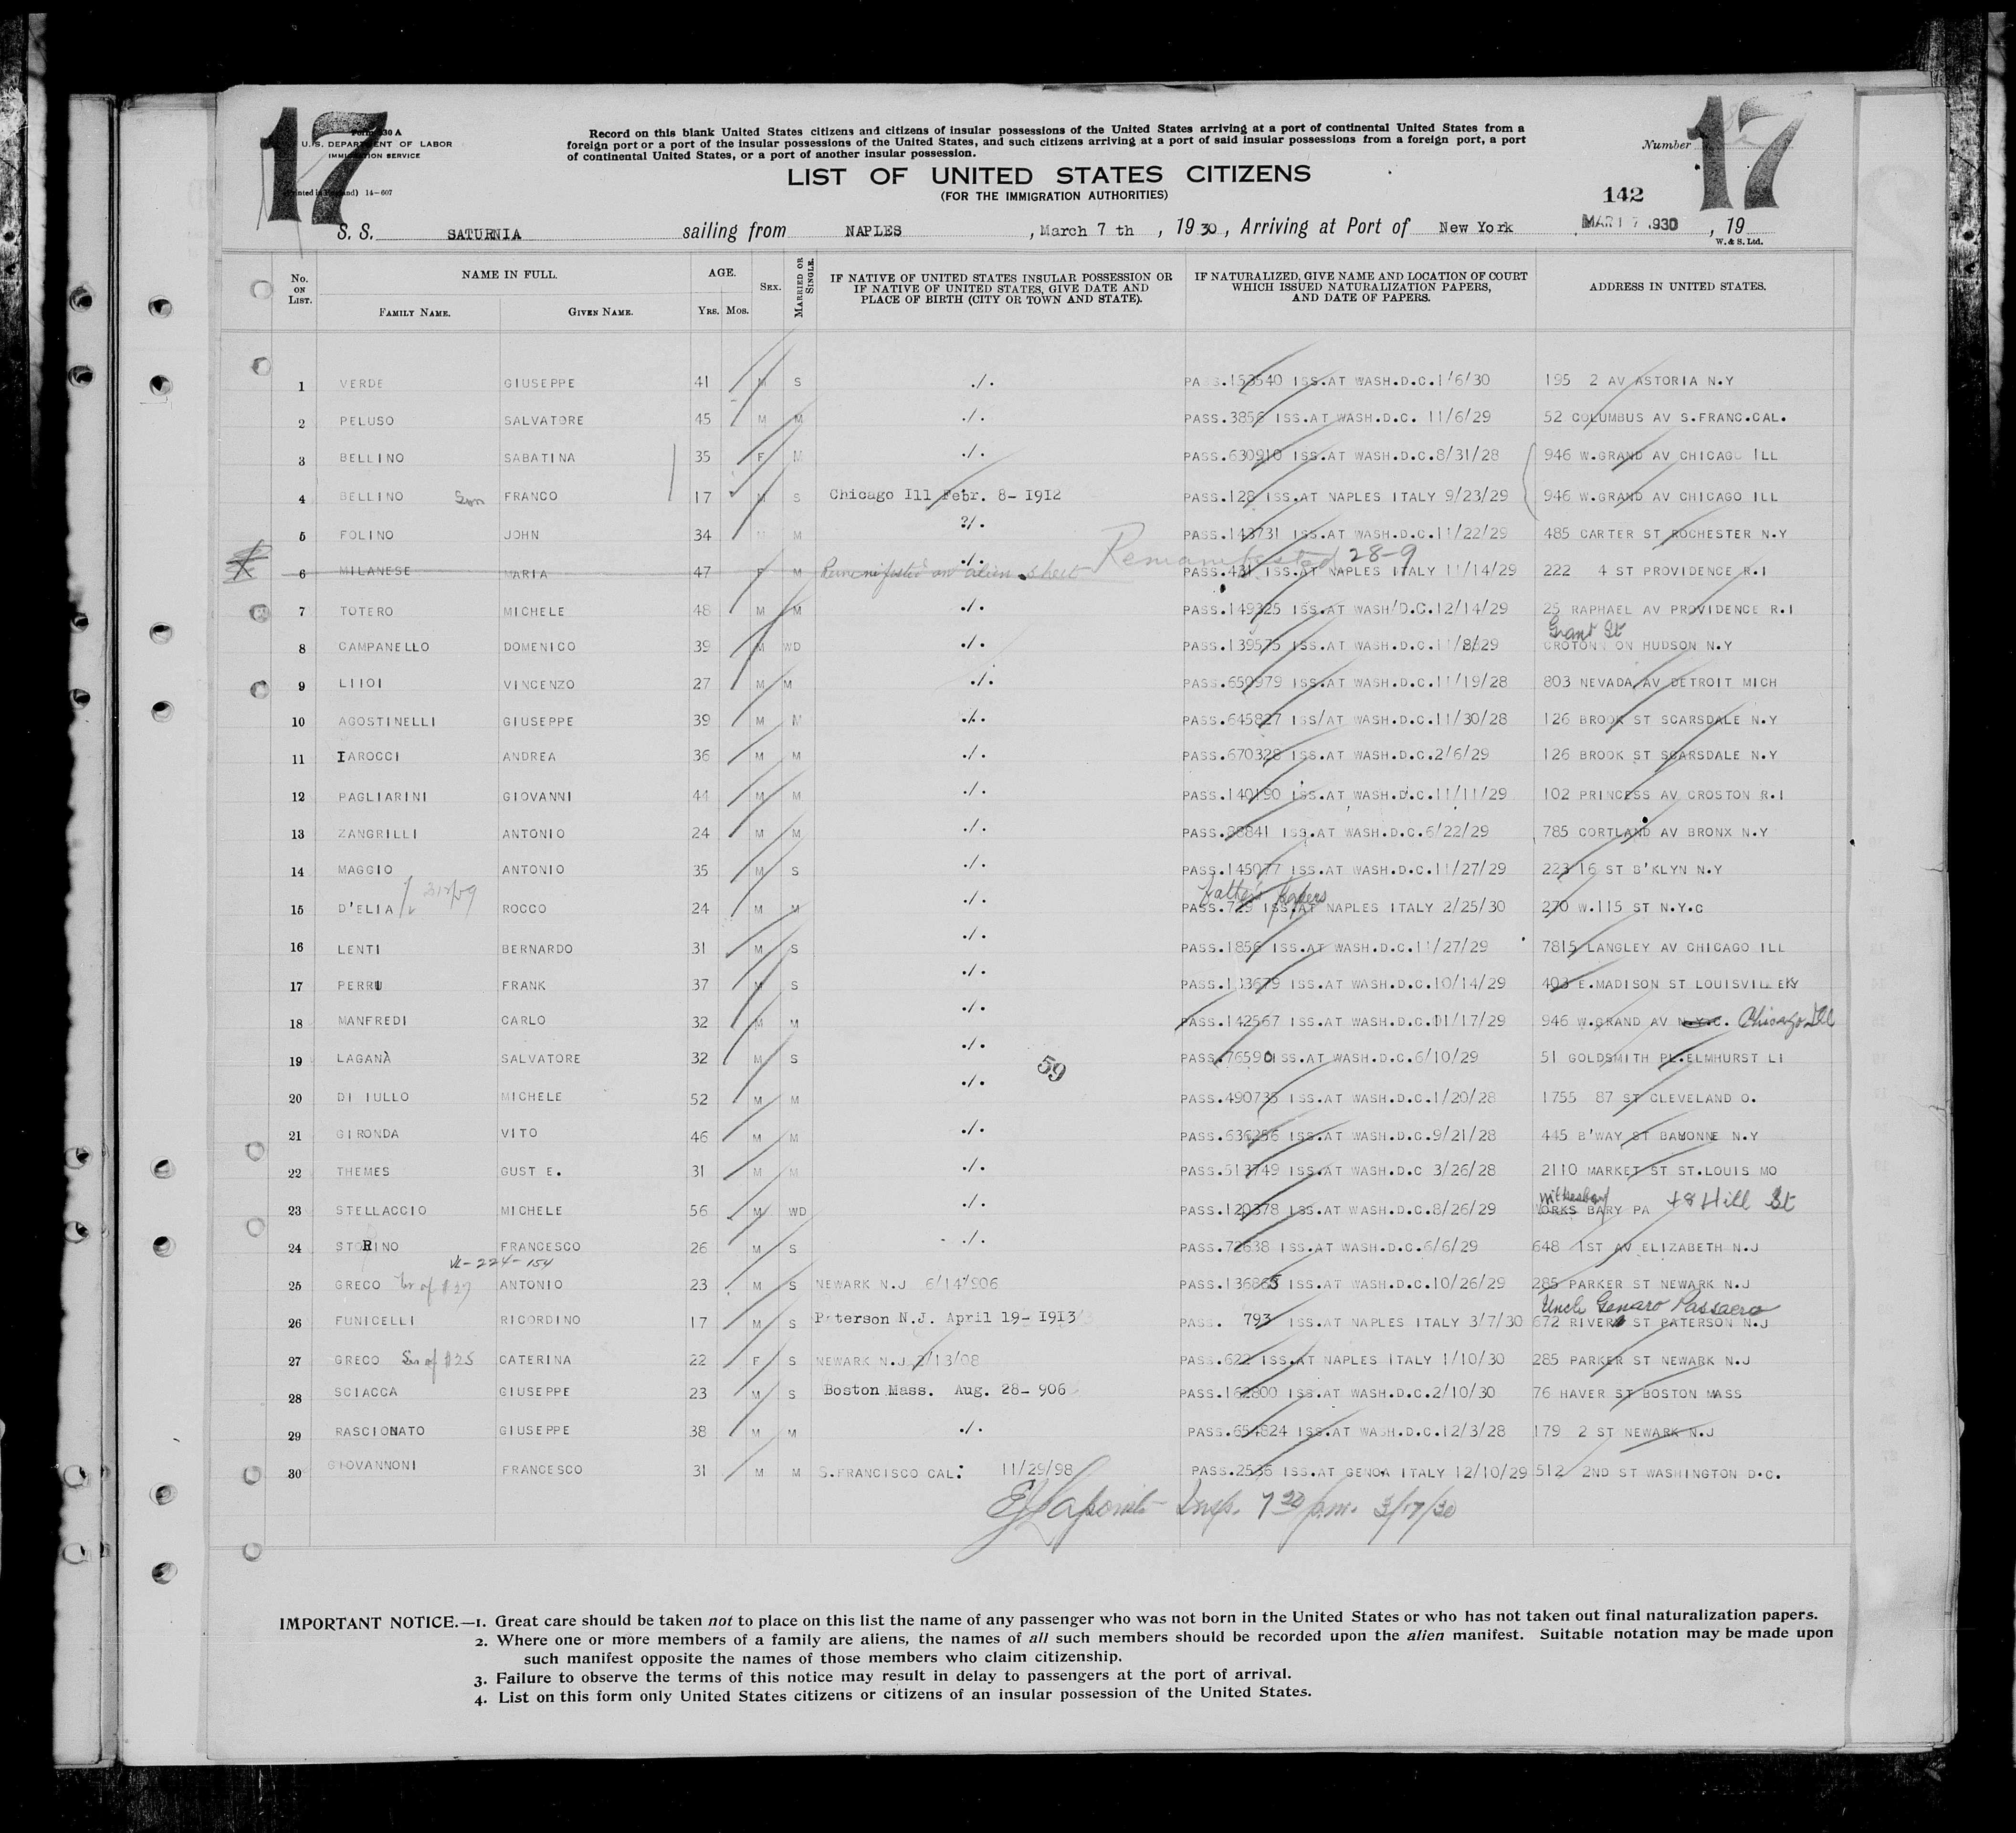 17
Form 630 A
U. S. DEPARTMENT OF LABOR
IMMIGRATION SERVICE
(Printed in England) 14—607
Record on this blank United States citizens and citizens of insular possessions of the United States arriving at a port of continental United States from a
foreign port or a port of the insular possessions of the United States, and such citizens arriving at a port of said insular possessions from a foreign port, a port
of continental United States, or a port of another insular possession.
LIST OF UNITED STATES CITIZENS
(FOR THE IMMIGRATION AUTHORITIES)
Number
17
142
S. S. SATURNIA sailing from NAPLES , March 7 th , 1930 , Arriving at Port of New York MAR 17 1930 , 19
W. & S. Ltd.
No. ON LIST. NAME IN FULL. FAMILY NAME. GIVEN NAME. AGE. YRS. MOS. SEX. MARRIED OR SINGLE. IF NATIVE OF UNITED STATES INSULAR POSSESSION OR IF NATIVE OF UNITED STATES, GIVE DATE AND PLACE OF BIRTH (CITY OR TOWN AND STATE). IF NATURALIZED, GIVE NAME AND LOCATION OF COURT WHICH ISSUED NATURALIZATION PAPERS, AND DATE OF PAPERS. ADDRESS IN UNITED STATES.
1 VERDE GIUSEPPE 41 M S ./. PASS.153540 ISS.AT WASH.D.C.1/6/30 195 2 AV ASTORIA N.Y
2 PELUSO SALVATORE 45 M M ./. PASS.3856 ISS.AT WASH.D.C. 11/6/29 52 COLUMBUS AV S.FRANC.CAL.
3 BELLINO SABATINA 35 F M ./. PASS.630910 ISS.AT WASH.D.C.8/31/28 946 W.GRAND AV CHICAGO ILL
4 BELLINO Son FRANCO 17 M S Chicago Ill Febr. 8- 1912 PASS.128 ISS.AT NAPLES ITALY 9/23/29 946 W.GRAND AV CHICAGO ILL
5 FOLINO JOHN 34 M M ?/. PASS.143731 ISS.AT WASH.D.C.11/22/29 485 CARTER ST ROCHESTER N.Y
Remanifested 28-9
6 MILANESE MARIA 47 F M ./. Remanifested on alien sheet PASS.431 ISS.AT NAPLES ITALY 11/14/29 222 4 ST PROVIDENCE R.I
7 TOTERO MICHELE 48 M M ./. PASS.149325 ISS.AT WASH/D.C.12/14/29 25 RAPHAEL AV PROVIDENCE R.I
Grant St
8 CAMPANELLO DOMENICO 39 M WD ./. PASS.139575 ISS.AT WASH.D.C.11/8/29 CROTON ON HUDSON N.Y
9 LIIOI VINCENZO 27 M M ./. PASS.650979 ISS.AT WASH.D.C.11/19/28 803 NEVADA AV DETROIT MICH
10 AGOSTINELLI GIUSEPPE 39 M M ./. PASS.645827 ISS/AT WASH.D.C.11/30/28 126 BROOK ST SCARSDALE N.Y
11 IAROCCI ANDREA 36 M M ./. PASS.670328 ISS.AT WASH.D.C.2/6/29 126 BROOK ST SCARSDALE N.Y
12 PAGLIARINI GIOVANNI 44 M M ./. PASS.140190 ISS.AT WASH.D.C.11/11/29 102 PRINCESS AV CROSTON R.I
13 ZANGRILLI ANTONIO 24 M M ./. PASS.88841 ISS.AT WASH.D.C.6/22/29 785 CORTLAND AV BRONX N.Y
14 MAGGIO ANTONIO 35 M S ./. PASS.145077 ISS.AT WASH.D.C.11/27/29 223 16 ST B'KLYN N.Y
Father's papers
15 D'ELIA ROCCO 24 M M ./. PASS.729 ISS.AT NAPLES ITALY 2/25/30 270 W.115 ST N.Y.C
16 LENTI BERNARDO 31 M S ./. PASS.1856 ISS.AT WASH.D.C.11/27/29 7815 LANGLEY AV CHICAGO ILL
17 PERRU FRANK 37 M S ./. PASS.133679 ISS.AT WASH.D.C.10/14/29 403 E.MADISON ST LOUISVILLEKY
18 MANFREDI CARLO 32 M M ./. PASS.142567 ISS.AT WASH.D.C.11/17/29 946 W.GRAND AV N.Y.C. Chicago Ill
19 LAGANÀ SALVATORE 32 M S ./. PASS.76590ISS.AT WASH.D.C.6/10/29 51 GOLDSMITH PL.ELMHURST LI
59
20 DI IULLO MICHELE 52 M M ./. PASS.490735 ISS.AT WASH.D.C.1/20/28 1755 87 ST CLEVELAND O.
21 GIRONDA VITO 46 M M ./. PASS.636256 ISS.AT WASH.D.C.9/21/28 445 B'WAY ST BAYONNE N.Y
22 THEMES GUST E. 31 M M ./. PASS.513749 ISS.AT WASH.D.C 3/26/28 2110 MARKET ST ST.LOUIS MO
Wilkesbary 48 Hill St
23 STELLACCIO MICHELE 56 M WD ./. PASS.120378 ISS.AT WASH.D.C.8/26/29 ORKS BARY PA
24 STORINO FRANCESCO 26 M S ./. PASS.72638 ISS.AT WASH.D.C.6/6/29 648 1ST AV ELIZABETH N.J
VL-224-154
25 GRECO Br of #27 ANTONIO 23 M S NEWARK N.J 6/14/906 PASS.136865 ISS.AT WASH.D.C.10/26/29 285 PARKER ST NEWARK N.J
Uncle Genaro Passaero
26 FUNICELLI RICORDINO 17 M S Paterson N.J. April 19- 1913 PASS. 793 ISS.AT NAPLES ITALY 3/7/30 672 RIVER ST PATERSON N.J
27 GRECO Sis of #25 CATERINA 22 F S NEWARK N.J 2/13/08 PASS.622 ISS.AT NAPLES ITALY 1/10/30 285 PARKER ST NEWARK N.J
28 SCIACCA GIUSEPPE 23 M S Boston Mass. Aug. 28- 906 PASS.162800 ISS.AT WASH.D.C.2/10/30 76 HAVER ST BOSTON MASS
29 RASCIONATO GIUSEPPE 38 M M ./. PASS.654824 ISS.AT WASH.D.C.12/3/28 179 2 ST NEWARK N.J
30 GIOVANNONI FRANCESCO 31 M M S.FRANCISCO CAL: 11/29/98 PASS.2536 ISS.AT GENOA ITALY 12/10/29 512 2ND ST WASHINGTON D.C.
Insp. 7 20 p.m. 3/17/30
IMPORTANT NOTICE.—1. Great care should be taken not to place on this list the name of any passenger who was not born in the United States or who has not taken out final naturalization papers.
2. Where one or more members of a family are aliens, the names of all such members should be recorded upon the alien manifest. Suitable notation may be made upon
such manifest opposite the names of those members who claim citizenship.
3. Failure to observe the terms of this notice may result in delay to passengers at the port of arrival.
4. List on this form only United States citizens or citizens of an insular possession of the United States.